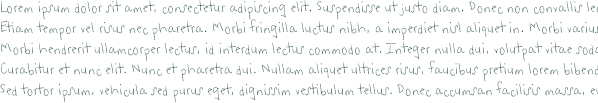 Lorem ipsum dolor sit amet, consectetur adipiscing elit. Suspendisse ut justo diam. Donec non convallis
Etiam tempor vel risus nec pharetra. Morbi fringilla luctus nibh, a imperdiet nisl aliquet in. Morbi varius
Morbi hendrerit ullamcorper lectus, id interdum lectus commodo at. Integer nulla dui, volutpat vitae
Curabitur et nunc elit. Nunc et pharetra dui. Nullam aliquet ultrices risus, faucibus pretium lorem
Sed tortor ipsum, vehicula sed purus eget, dignissim vestibulum tellus. Donec accumsan facilisis massa,